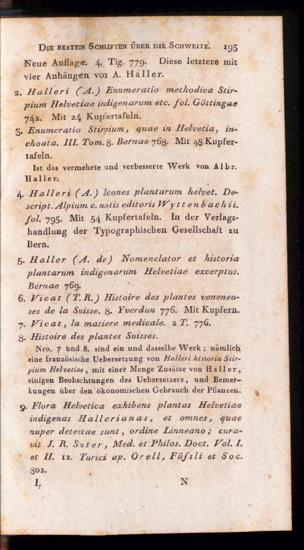 DIE BESTEN SCHRIFTEN ÜBER DIE SCHWEITZ. 193
Neue Auflage. 4. Tig. 779. Diese letztere mit
vier Anhängen von A. Haller.
2. Halleri (A.) Enumeratio methodica Stir-
pium Helvetiae indigenarum etc. fol. Göttingae
742. Mit 24 Kupfertafeln.
3. Enumeratio Stirpium, quae in Helvetia, in-
choata. III. Tom. 8. Bernae 768. Mit 48 Kupfer-
tafeln.
Ist das vermehrte und verbesserte Werk von Albr.
Haller.
4. Halleri (A.) Icones plantarum helvet. De-
script. Alpium c. notis editoris Wyttenbachii.
fol. 795. Mit 54 Kupfertafeln. In der Verlags-
handlung der Typographischen Gesellschaft zu
Bern.
5. Haller (A. de) Nomenclator et historia
plantarum indigenarum Helvetiae excerptus.
Bernae 769.
6. Vicat (T. R.) Histoire des plantes veneneu-
ses de la Suisse. 8. Yverdun 776. Mit Kupfern.
7. Vicat, la matiere medicale. 2 T. 776.
8. Histoire des plantes Suisses.
Nro. 7 und 8. sind ein und dasselbe Werk; nämlich
eine französische Uebersetzung von Halleri historia Stir-
pium Helvetiae, mit einer Menge Zusätze von Haller,
einigen Beobachtungen des Uebersetzers, und Bemer-
kungen über den ökonomischen Gebrauch der Pflanzen.
9. Flora Helvetica exhibens plantas Helvetiae
indigenas Hallerianas, et omnes, quae
nuper detectae sunt, ordine Linneano; cura-
vit J. R. Suter, Med. et Philos. Doct. Vol. I.
et II. 12. Turici ap. Orell, Füfsli et Soc.
802.
I. N